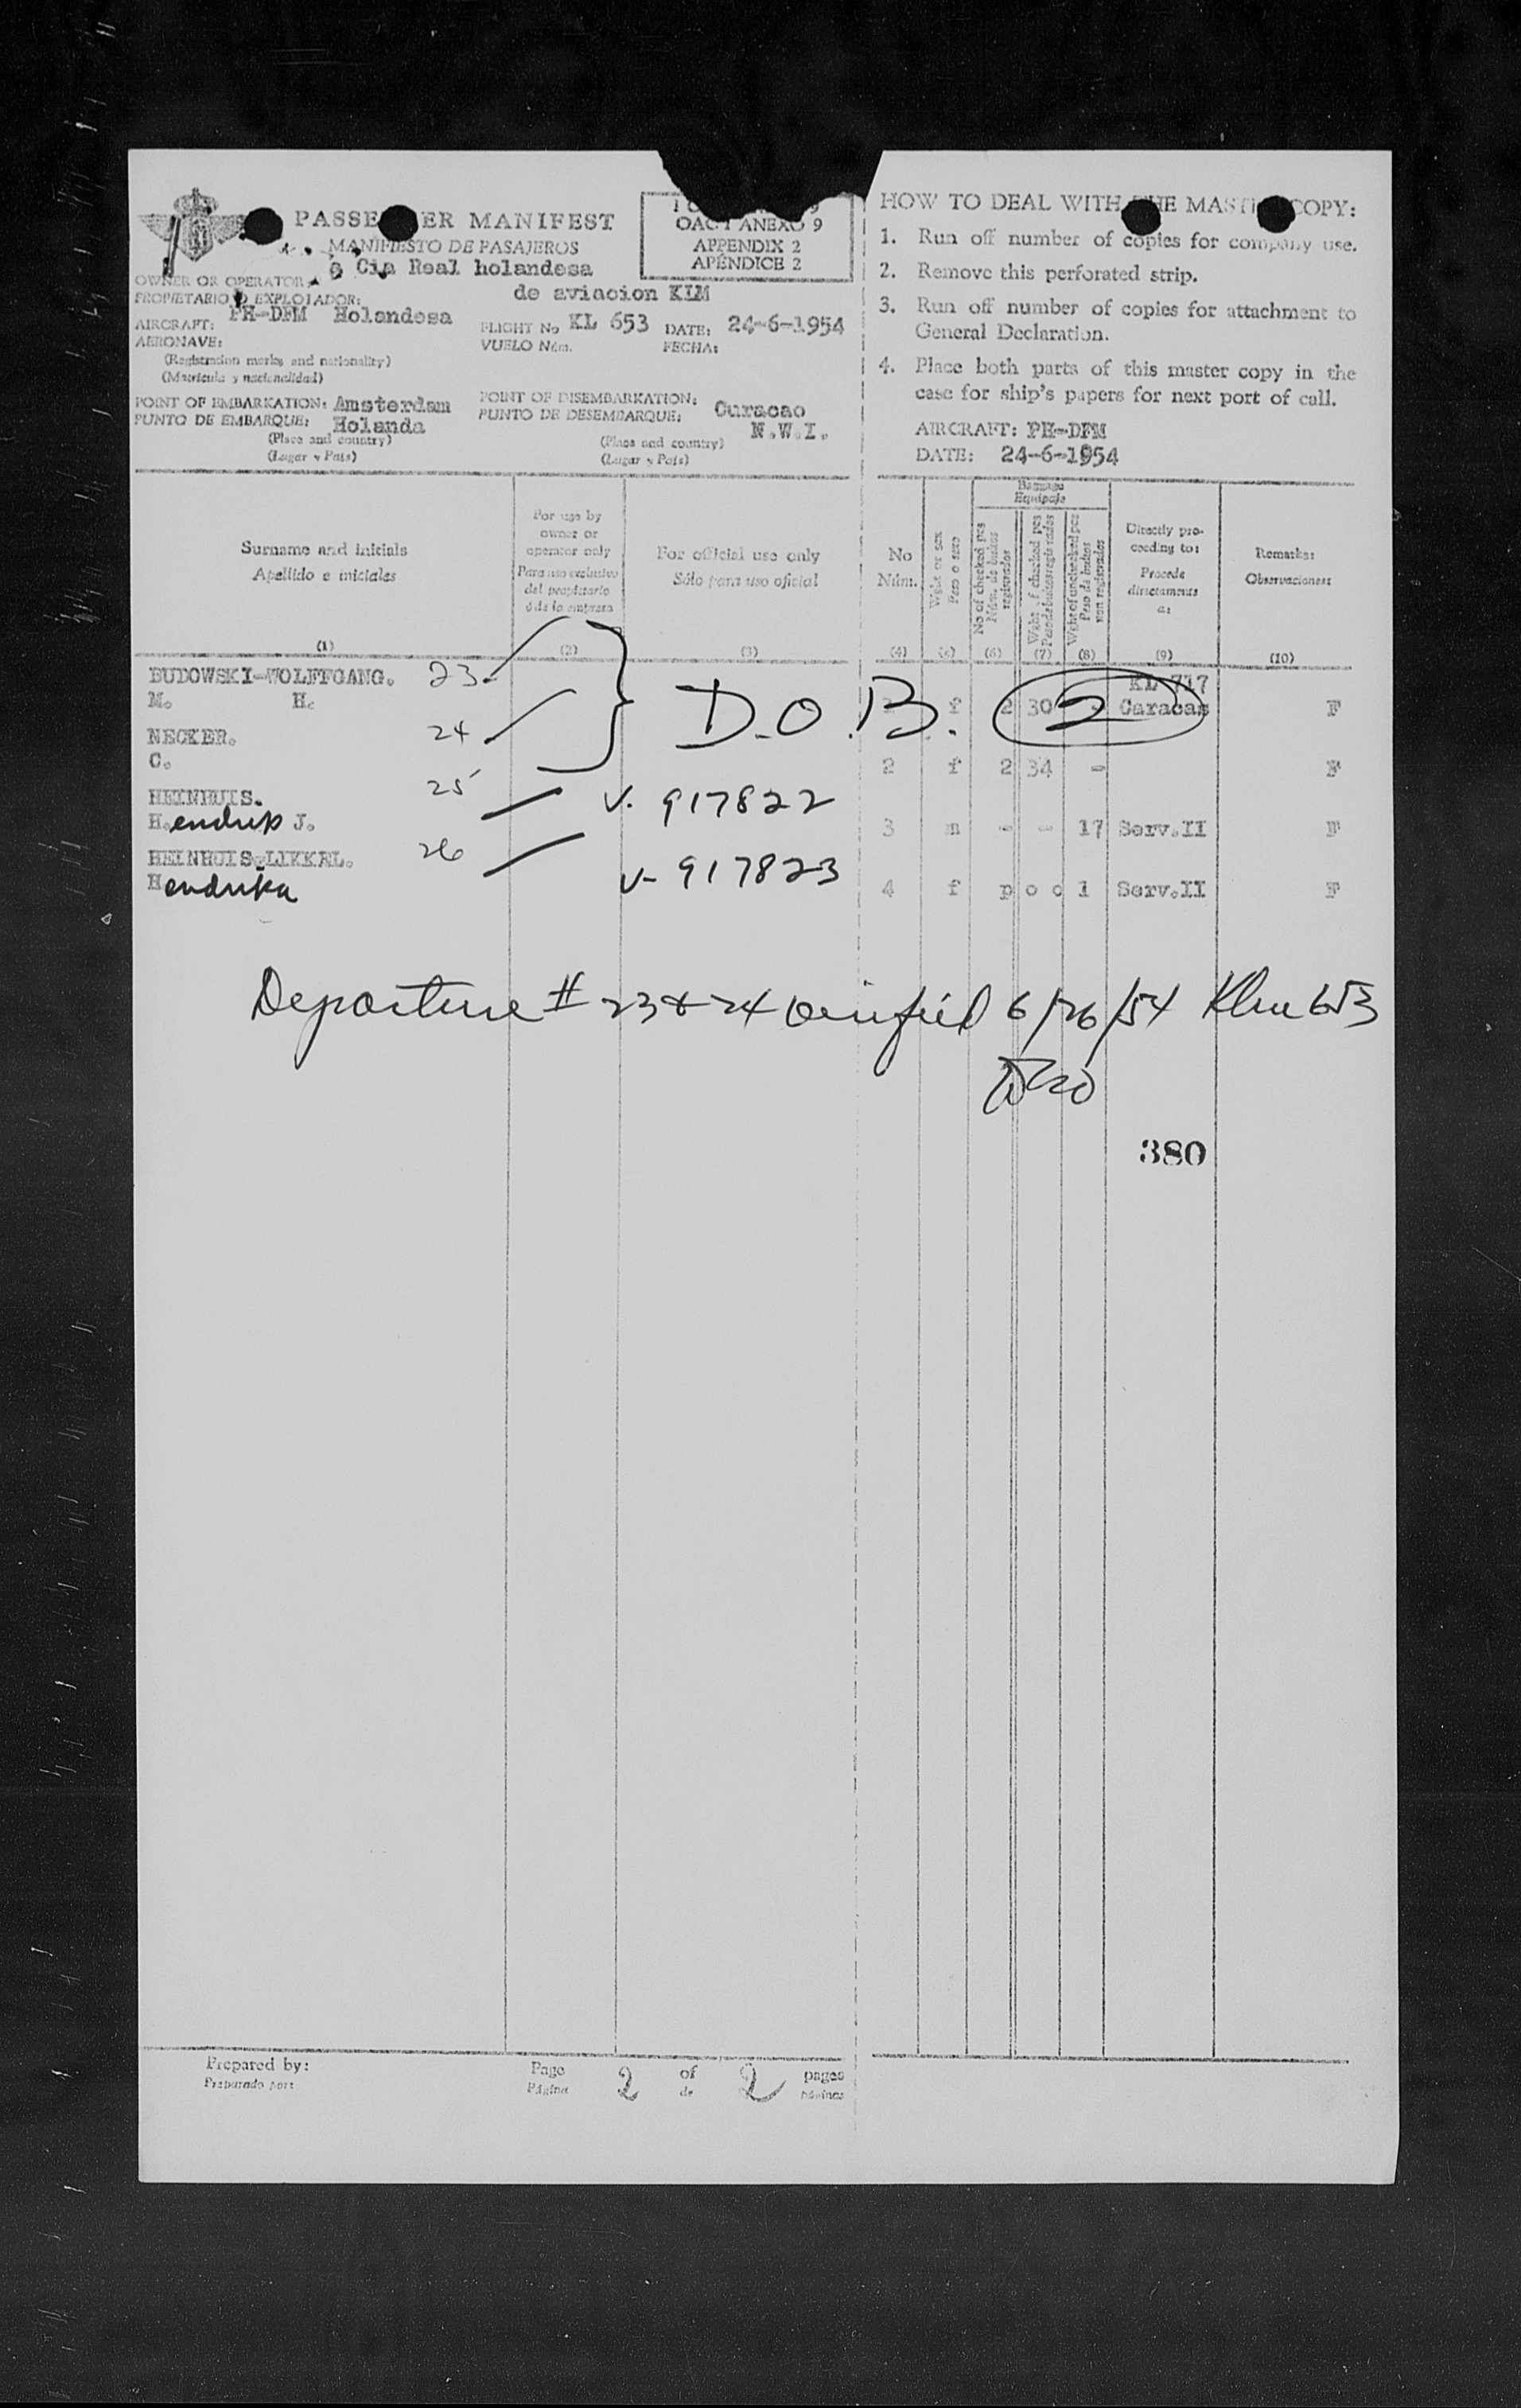 PASSE ER MANIFEST
MANIFIESTO DE PASAJEROS
OACI ANEXO 9
APPENDIX 2
APÉNDICE 2
OWNER OR OPERATOR: Cia Real holandesa
PROPIETARIO O EXPLOTADOR: de aviacion KLM
AIRCRAFT: PH-DFM Holandesa FLIGHT No KL 653 DATE: 24-6-1954
AERONAVE: VUELO Núm. FECHA:
(Registration marks and nationality)
(Matrícula y nacionalidad)
POINT OF EMBARKATION: Amsterdam POINT OF DISEMBARKATION: Curacao
PUNTO DE EMBARQUE: Holanda PUNTO DE DESEMBARQUE: N.W.I.
(Place and country) (Place and country)
(Lugar y País) (Lugar y País)
HOW TO DEAL WITH HE MAST COPY:
1. Run off number of copies for company use.
2. Remove this perforated strip.
3. Run off number of copies for attachment to
General Declaration.
4. Place both parts of this master copy in the
case for ship's papers for next port of call.
AIRCRAFT: PH-DFM
DATE: 24-6-1954
Surname and initials
Apellido e iniciales
(1)
For use by
owner or
operator only
Para uso exclusivo
del propietario
ó de la empresa
(2)
For official use only
Sólo para uso oficial
(3)
No
Núm.
(4)
Wght or sex
Peso o sexo
Baggage
Equipaje
No of checked pcs
Núm. de bultos
registrados
(6)
Wght of checked pcs
Peso de bultos registrados
(7)
Wght of unchecked pcs
Peso de bultos
non registrados
(8)
Directly pro-
ceeding to:
Procede
directamente
a:
(9)
Remarks:
Observaciones:
(10)
BUDOWSKI-WOLFFGANG. 23 KL 717
M. H. D.O.B. f 2 30 - 2 Caracas F
NECKER. 24
C. 2 f 2 34 - F
HEINHUIS. 25 V- 917822
H.endrik J. 3 m - - 17 Serv.II F
HEINHUIS-LIKKEL. 26 V- 917823
Hendrika 4 f p o o l Serv.II F
Departure # 23 & 24 verified 6/26/54 Klm 653
380
Prepared by: Page 2 of 2 pages
Preparado por: Página de páginas